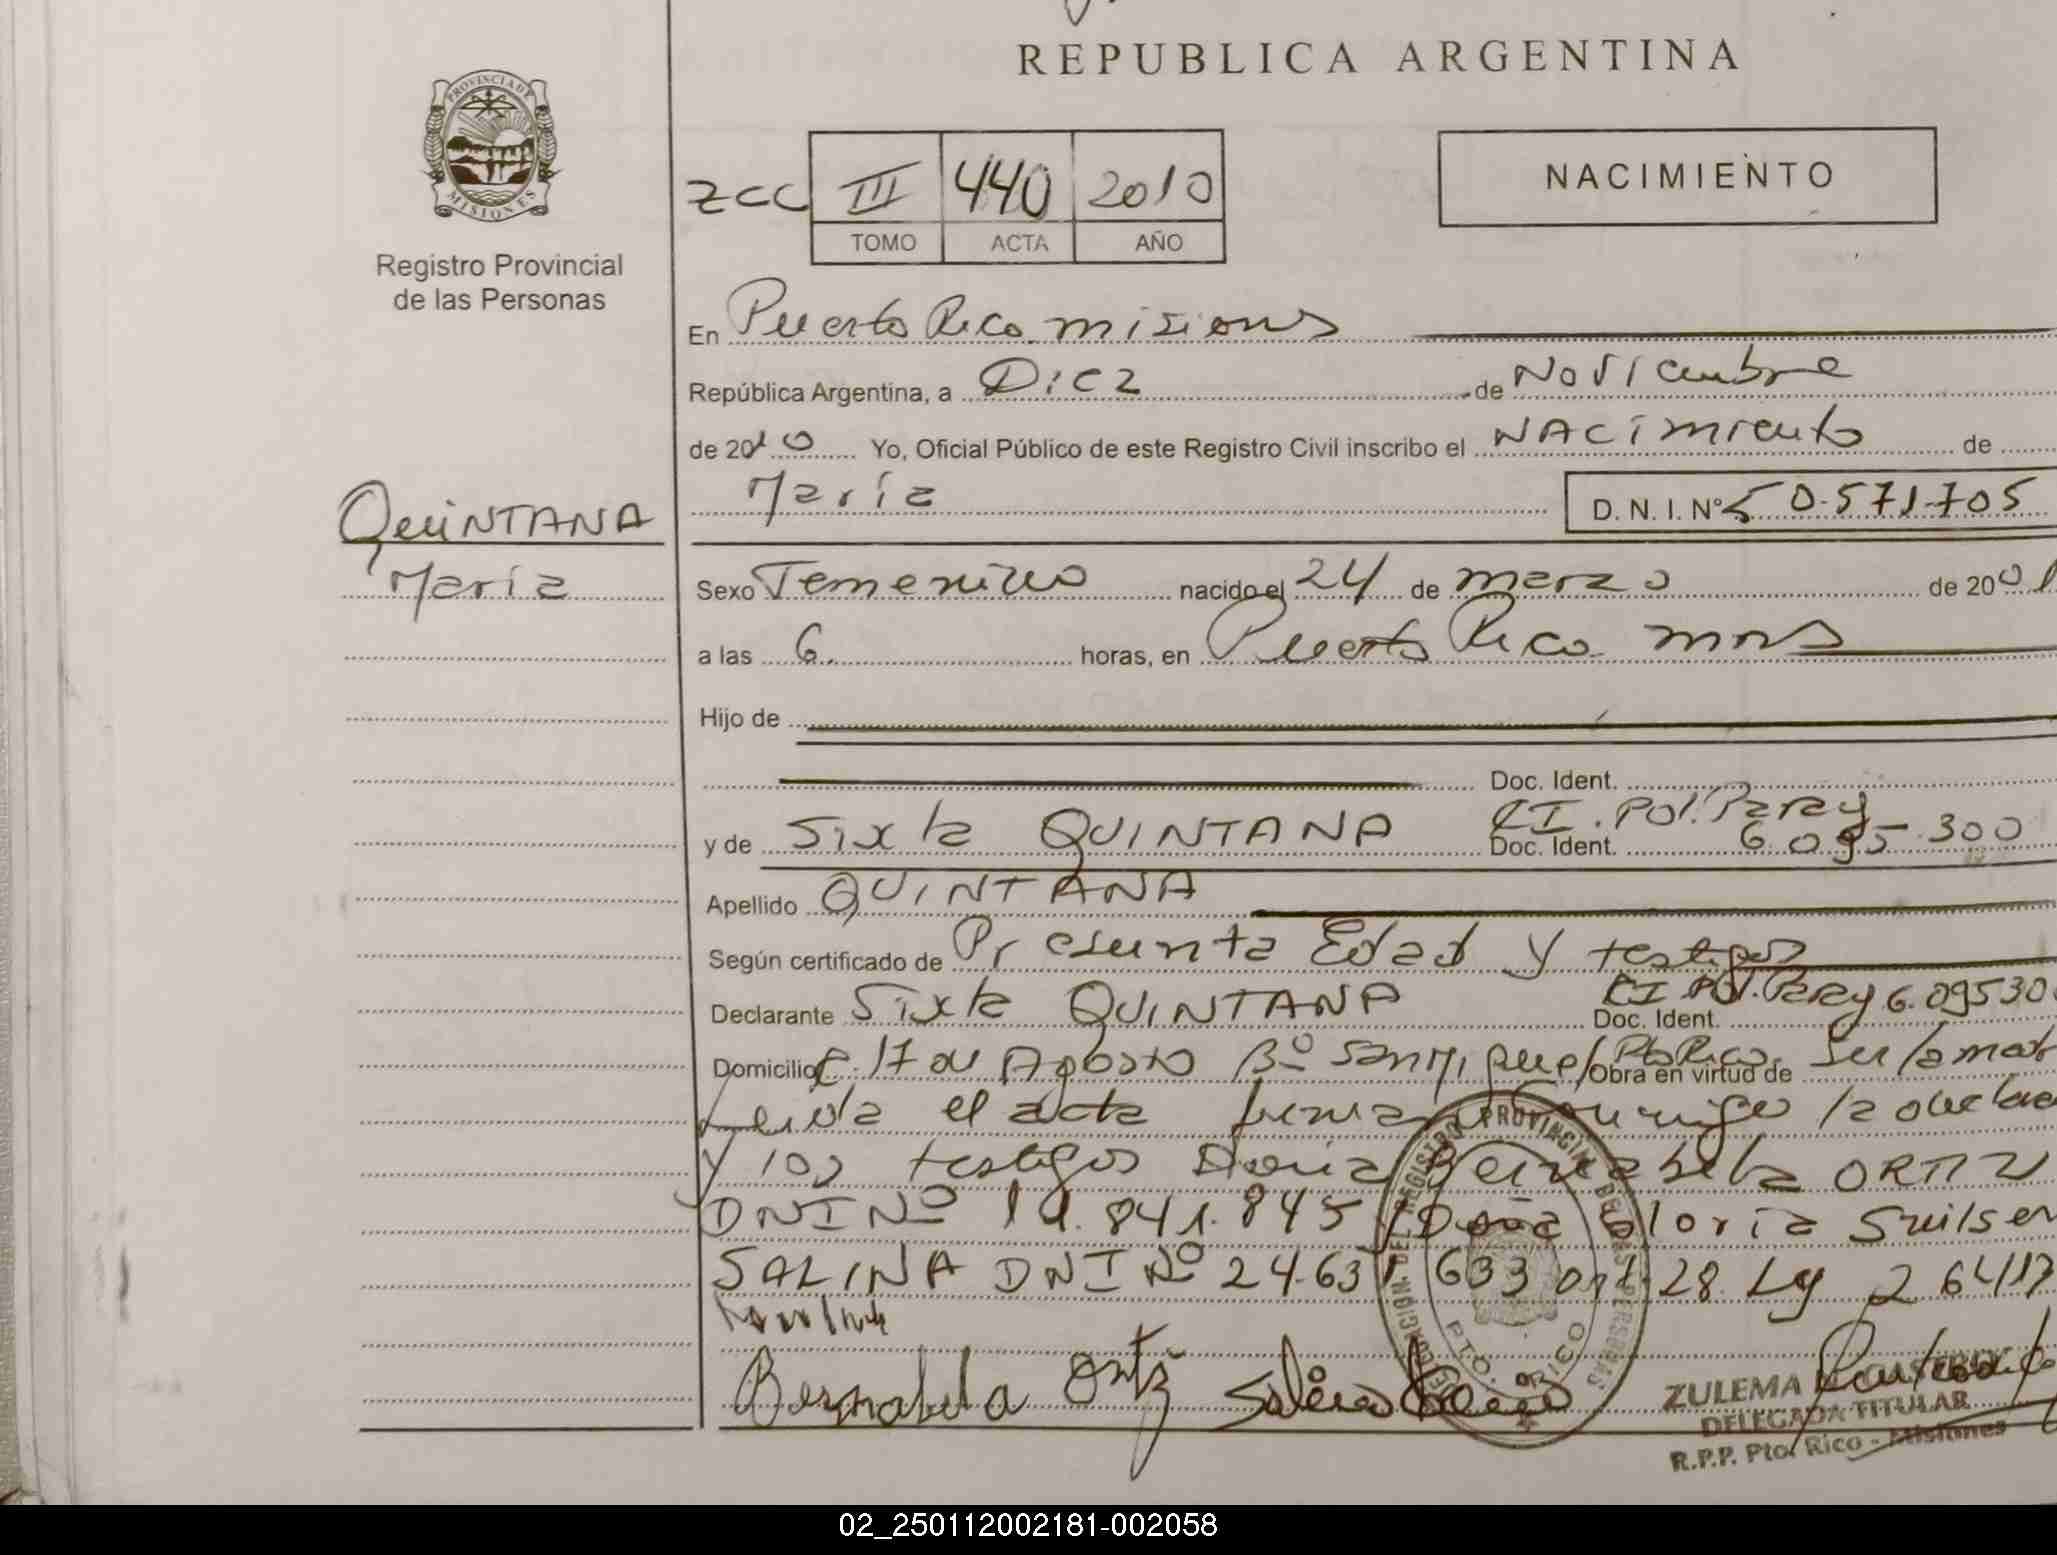 REPUBLICA ARGENTINA
PROVINCIA DE MISIONES
Registro Provincial
de las Personas
ZCC III 440 2010
TOMO ACTA AÑO
NACIMIENTO
En Puerto Rico misiones
República Argentina, a Diez de Noviembre
de 2010 Yo, Oficial Público de este Registro Civil inscribo el NACimiento de
María D. N. I. Nº 50.571.705
QUINTANA
María
Sexo Femenino nacido el 24 de marzo de 2001
a las 6. horas, en Puerto Rico mns
Hijo de
Doc. Ident.
y de Sixta QUINTANA Doc. Ident. CI. Pol. Paray 6.095.300
Apellido QUINTANA
Según certificado de Presunta Edad y testigos
Declarante Sixta QUINTANA Doc. Ident. CI Pol. Paray 6.09530
Domicilio C. 17 de Agosto Bº San Miguel Pto Rico Obra en virtud de Ser la mad
Leida el acta firma conmigo la declar
y los testigos Doña Bernabela ORTIZ
DNI Nº 841.845 Doña Gloria
SALINA DNI Nº 24.631.633 art. 28 Ley 26413
Bernabela Ortiz
REGISTRO PROVINCIAL DE LAS PERSONAS
PTO. RICO
ZULEMA
DELEGADA TITULAR
R.P.P. Pto. Rico - Misiones
02_250112002181-002058